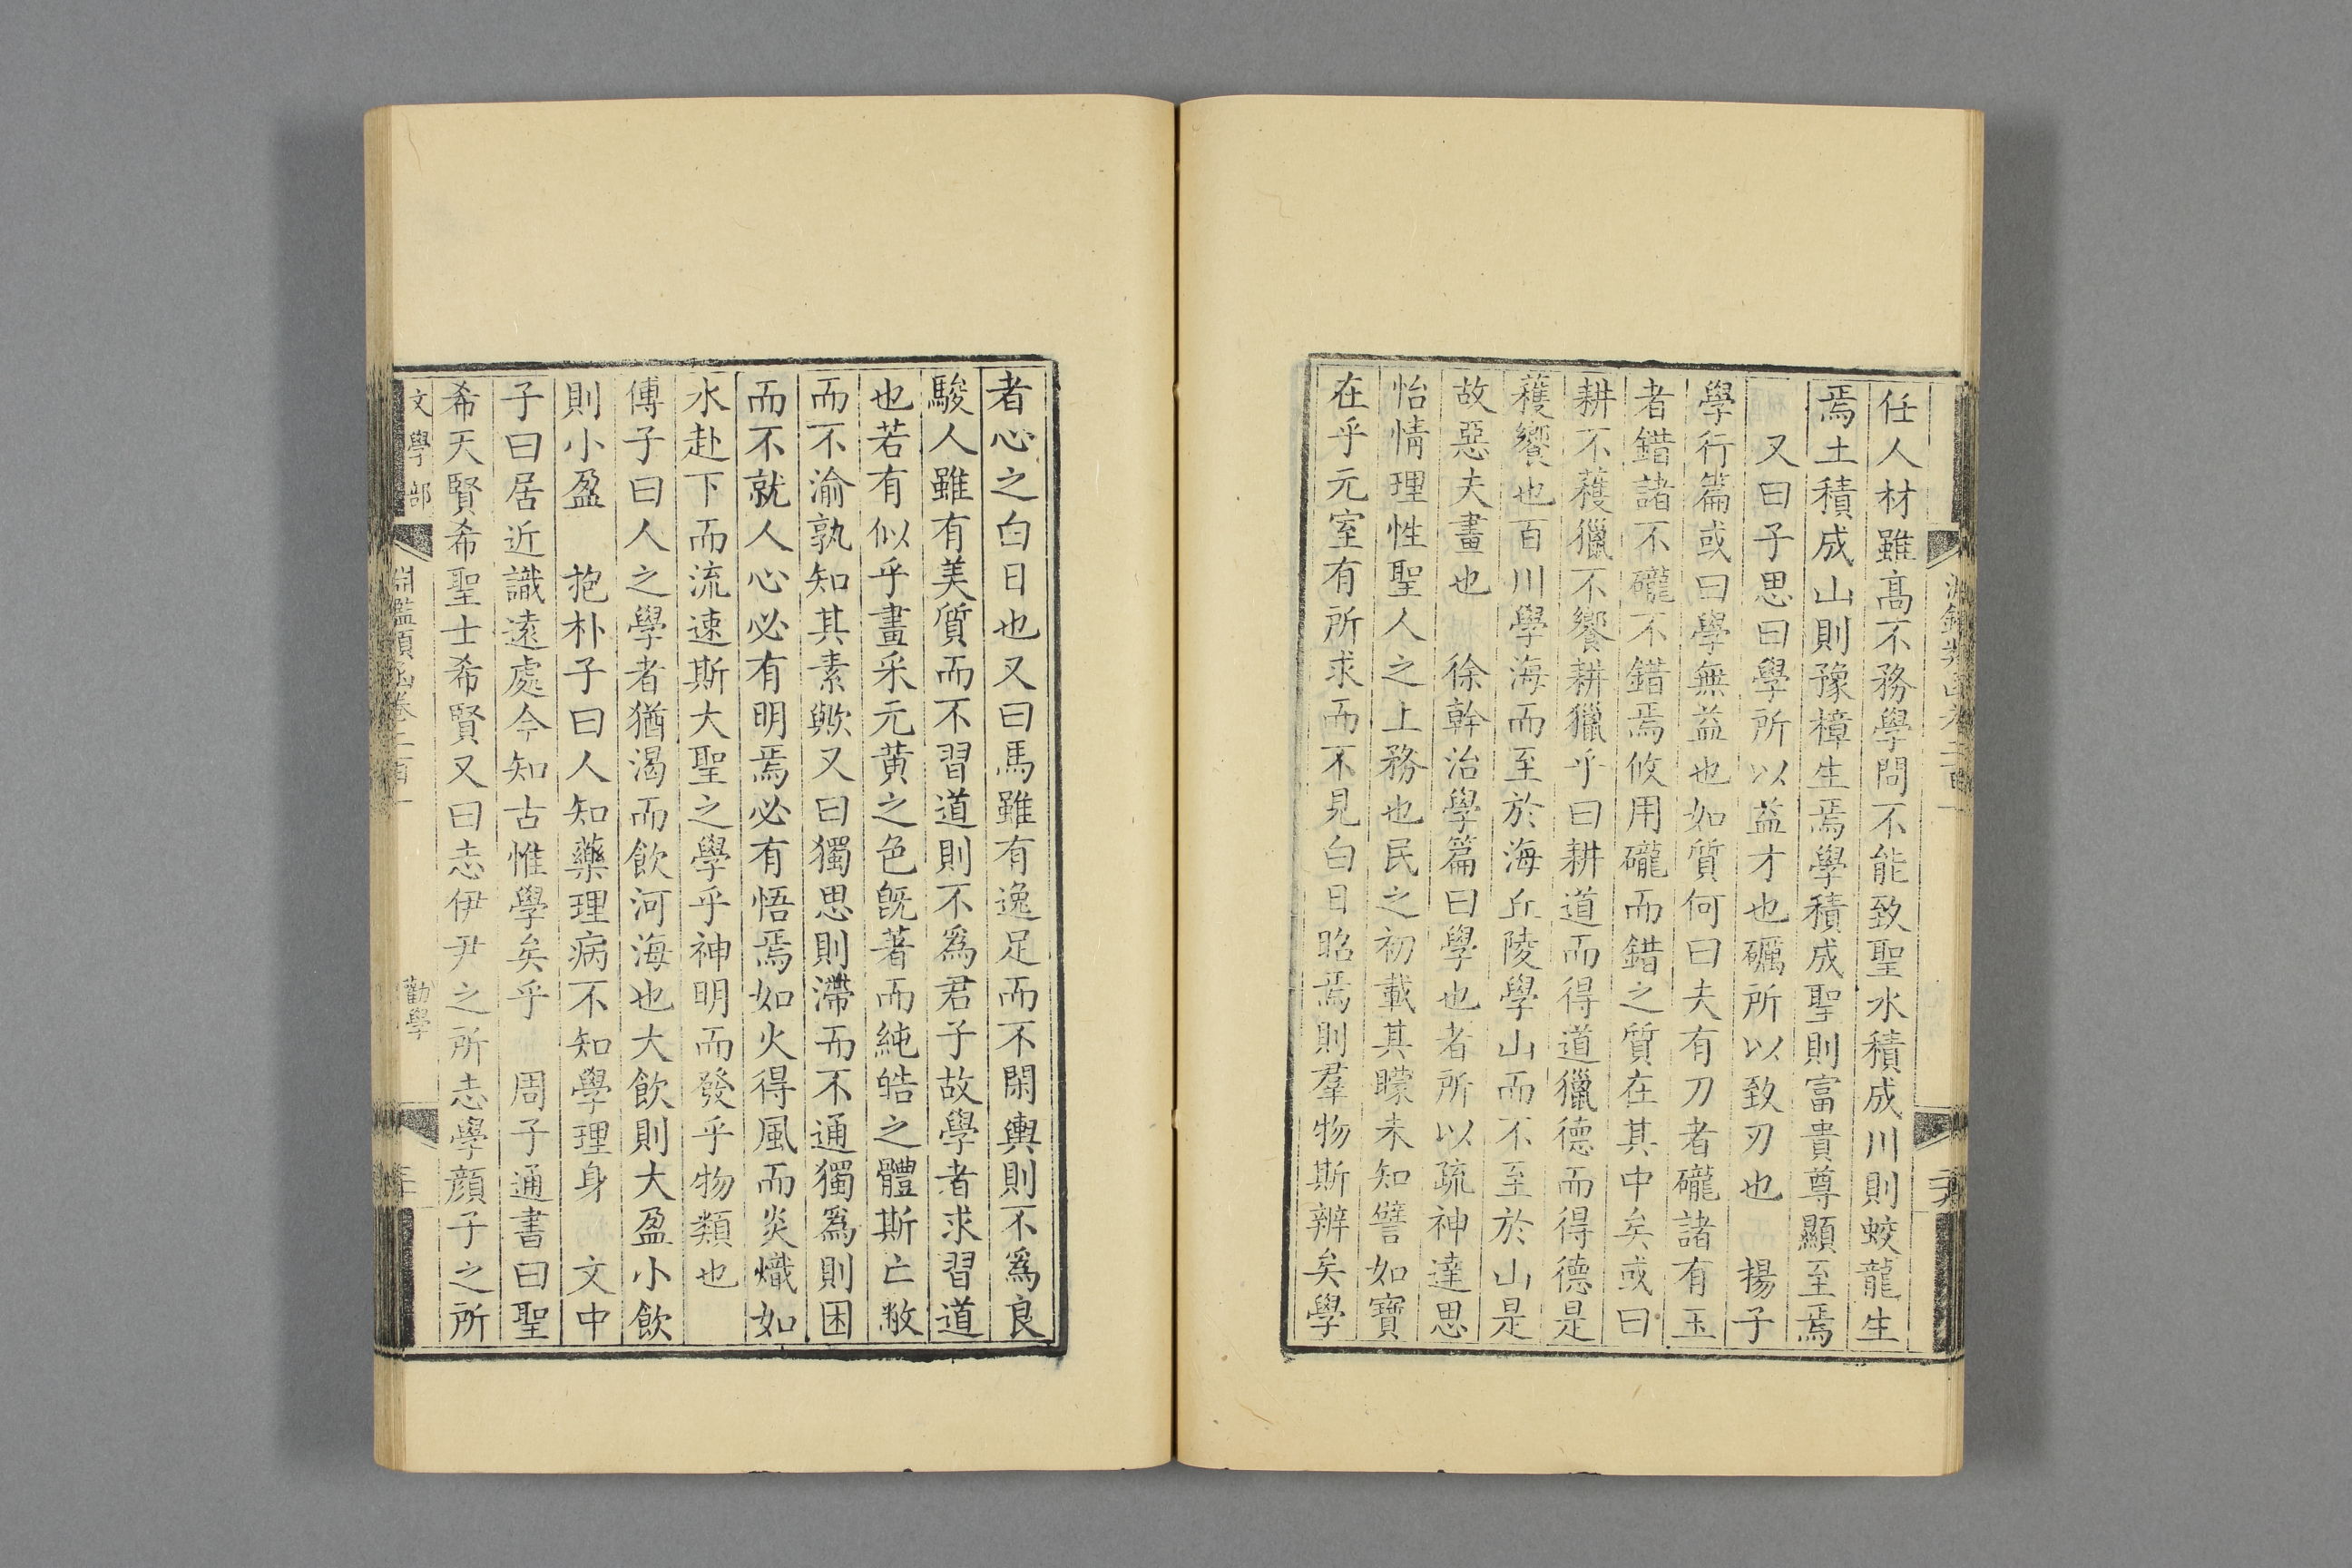 任人材雖高不務學問不能致聖水積成川則蛟龍生
焉土積成山則豫樟生焉學積成聖則富貴尊顯至焉
又曰子思曰學所以益才也礪所以致刃也　揚子
學行篇或曰學無益也如質何曰夫有刀者礲諸有玉
者錯諸不礲不錯焉攸用礲而錯之質在其中矣或曰
耕不穫獵不饗耕獵乎曰耕道而得道獵德而得德是
穫饗也百川學海而至於海丘陵學山而不至於山是
故惡夫畫也　徐幹治學篇曰學也者所以疏神達思
怡情理性聖人之上務也民之初載其矇未知譬如寶
在乎元室有所求而不見白日昭焉則羣物斯辨矣學
者心之白日也又曰馬雖有逸足而不閑輿則不爲良
駿人雖有美質而不習道則不爲君子故學者求習道
也若有似乎畫采元黄之色既著而純皓之體斯亡敝
而不渝孰知其素歟又曰獨思則滯而不通獨爲則困
而不就人心必有明焉必有悟焉如火得風而炎熾如
水赴下而流速斯大聖之學乎神明而發乎物類也
傅子曰人之學者猶渴而飲河海也大飲則大盈小飲
則小盈　抱朴子曰人知藥理病不知學理身　文中
子曰居近識遠處今知古惟學矣乎　周子通書曰聖
希天賢希聖士希賢又曰志伊尹之所志學顔子之所
文學部　淵鑑類函卷二百一　勸學